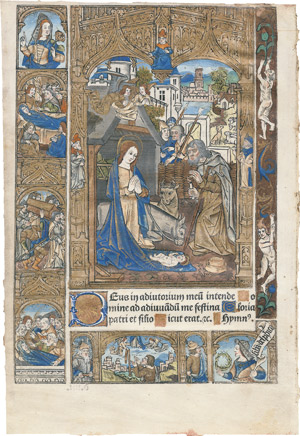 Deus in adiutorium meū intende
mine ad adiuvādū me festina Gloria
patri et filio Sicut erat. &c. Hymnº.